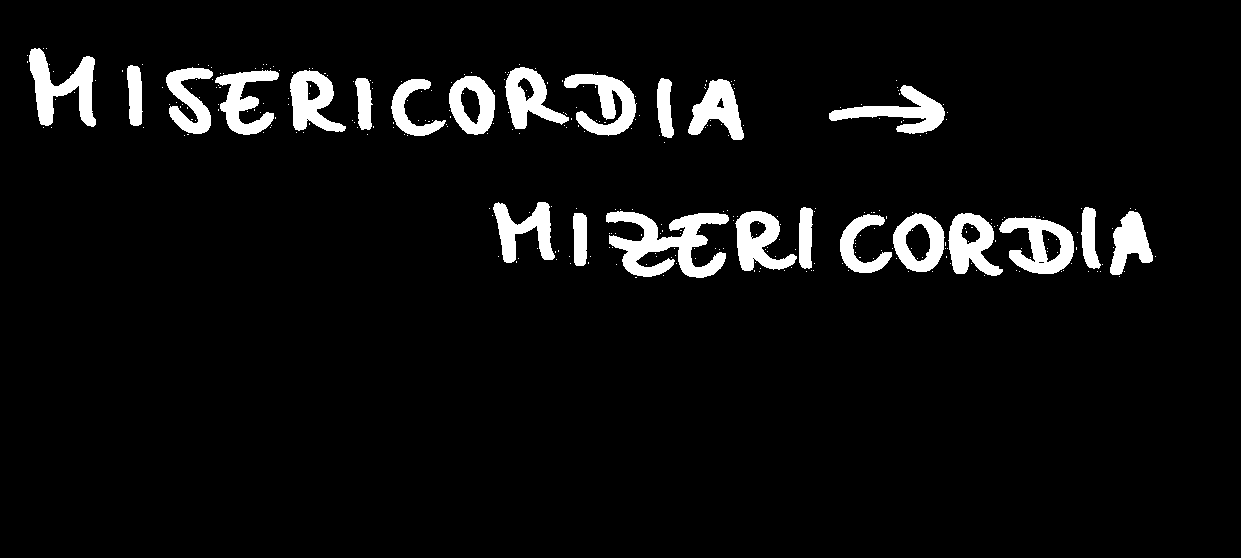 MISERICORDIA →
MIZERICORDIA